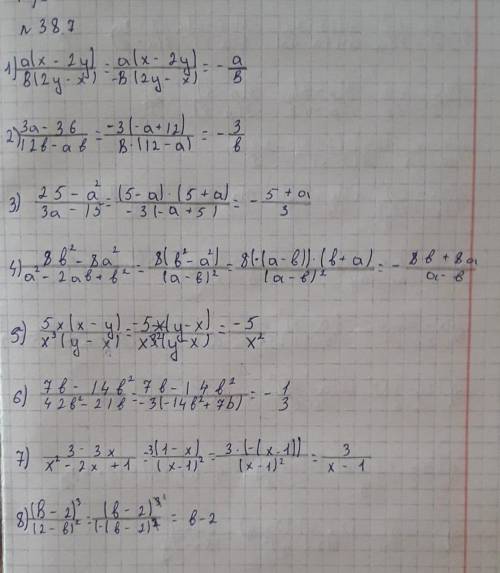 № 38.7
1) a(x - 2y)/B(2y - x) = a(x - 2y)/-B(2y - x) = - a/B
2) 3a - 36/12b - ab = -3(-a + 12)/B·(12 - a) = - 3/b
3) 25 - a²/3a - 15 = (5 - a)·(5 + a)/-3(-a + 5) = - 5 + a/3
4) 8b² - 8a²/a² - 2ab + b² = 8(b² - a²)/(a - b)² = 8(-(a - b))·(b + a)/(a - b)² = - 8b + 8a/a - b
5) 5x(x - y)/x³(y - x) = -5x(y - x)/x³²(y - x) = -5/x²
6) 7b - 14b²/42b² - 21b = 7b - 14b²/-3(-14b² + 7b) = - 1/3
7) 3 - 3x/x² - 2x + 1 = 3(1 - x)/(x - 1)² = 3·(-(x - 1))/(x - 1)² = 3/x - 1
8) (B - 2)³/(2 - b)² = (b - 2)³¹/(-(b - 2)² = b - 2